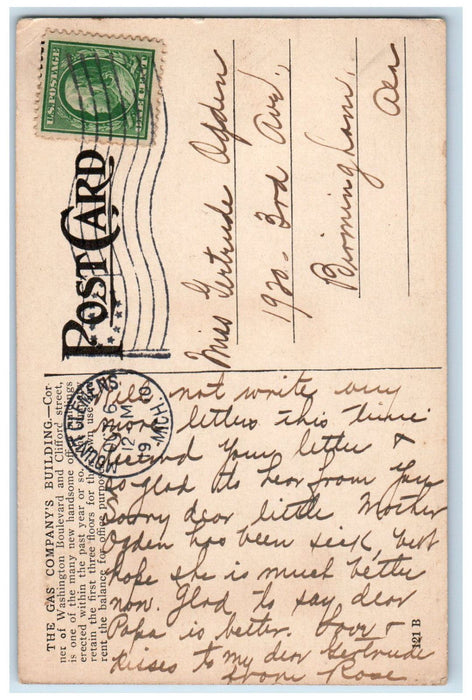 U.S. POSTAGE
POST CARD
MOUNT CLEMENS
OCT 6
12 M
19
MICH.
Miss Gertrude Ogden
1920- 3rd Ave.
Birmingham,
Ala
THE GAS COMPANY'S BUILDING.—Cor-
ner of Washington Boulevard and Clifford street,
is one of the many new handsome office buildings
erected within the past year or so.
retain the first three floors for their own use
rent the balance for office purposes
Will not write any
more letters this time
received your letter &
so glad to hear from you
Sorry dear little Mother
Ogden has been sick, but
hope she is much better
now. Glad to say dear
Papa is better. Love &
kisses to my dear Gertrude
Rose
121 B